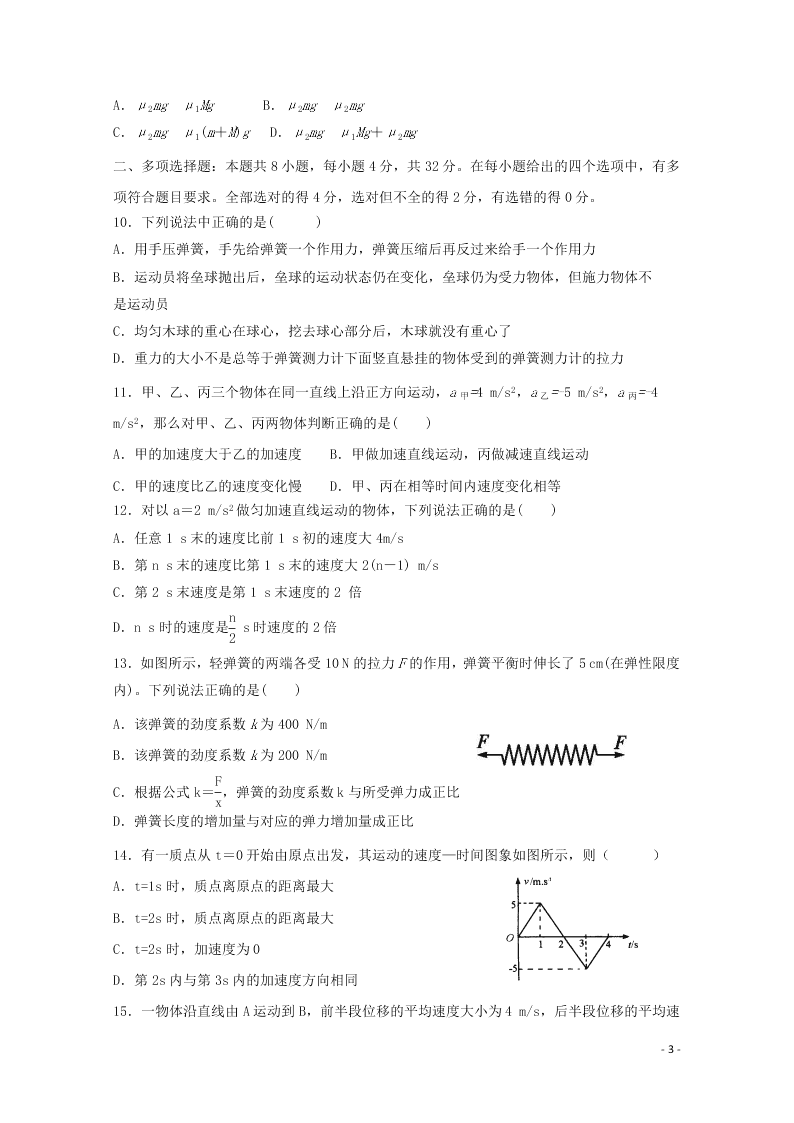 A．μ₂mg　μ₁Mg　　　B．μ₂mg　μ₂mg
C．μ₂mg　μ₁(m＋M)g　D．μ₂mg　μ₁Mg＋μ₂mg
二、多项选择题：本题共 8 小题，每小题 4 分，共 32 分。在每小题给出的四个选项中，有多
项符合题目要求。全部选对的得 4 分，选对但不全的得 2 分，有选错的得 0 分。
10．下列说法中正确的是(　　　)
A．用手压弹簧，手先给弹簧一个作用力，弹簧压缩后再反过来给手一个作用力
B．运动员将垒球抛出后，垒球的运动状态仍在变化，垒球仍为受力物体，但施力物体不
是运动员
C．均匀木球的重心在球心，挖去球心部分后，木球就没有重心了
D．重力的大小不是总等于弹簧测力计下面竖直悬挂的物体受到的弹簧测力计的拉力
11．甲、乙、丙三个物体在同一直线上沿正方向运动，a甲=4 m/s²，a乙=-5 m/s²，a丙=-4
m/s²，那么对甲、乙、丙两物体判断正确的是(　　)
A．甲的加速度大于乙的加速度　　B．甲做加速直线运动，丙做减速直线运动
C．甲的速度比乙的速度变化慢　　D．甲、丙在相等时间内速度变化相等
12．对以 a＝2 m/s²做匀加速直线运动的物体，下列说法正确的是(　　)
A．任意 1 s末的速度比前 1 s初的速度大 4m/s
B．第 n s末的速度比第 1 s末的速度大 2(n－1) m/s
C．第 2 s末速度是第 1 s末速度的 2 倍
D．n s时的速度是n/2 s时速度的 2 倍
13．如图所示，轻弹簧的两端各受 10 N 的拉力 F 的作用，弹簧平衡时伸长了 5 cm(在弹性限度
内)。下列说法正确的是(　　)
A．该弹簧的劲度系数 k 为 400 N/m
B．该弹簧的劲度系数 k 为 200 N/m
F F
C．根据公式 k＝F/x，弹簧的劲度系数 k 与所受弹力成正比
D．弹簧长度的增加量与对应的弹力增加量成正比
14．有一质点从 t＝0 开始由原点出发，其运动的速度—时间图象如图所示，则（　　　）
A．t=1s 时，质点离原点的距离最大
B．t=2s 时，质点离原点的距离最大
C．t=2s 时，加速度为 0
D．第 2s 内与第 3s 内的加速度方向相同
v/m.s⁻¹
5
O 1 2 3 4 t/s
-5
15．一物体沿直线由 A 运动到 B，前半段位移的平均速度大小为 4 m/s，后半段位移的平均速
- 3 -